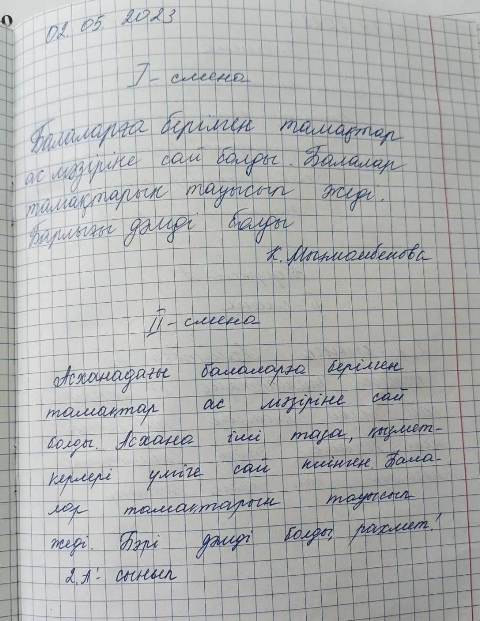 02 05 2023
I - смена
Балаларға берілген тамақтар
ас мәзіріне сай болды. Балалар
тамақтарын тауысып жеді.
Барлығы дәмді болды
К.
II - смена
Асханадағы балаларға берілген
тамақтар ас мәзіріне сай
болды. Асхана іші таза, қызмет-
керлері үлгіге сай киінген. Бала-
лар тамақтарын тауысып
жеді. Бәрі дәмді болды, рахмет!
2 "А" - сынып